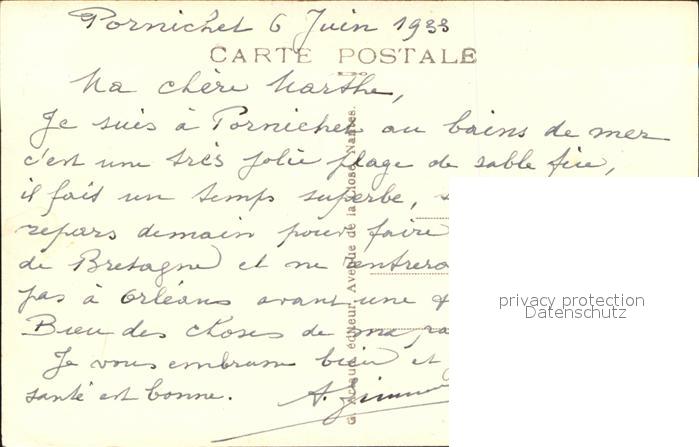 Pornichet 6 Juin 1933
CARTE POSTALE
Ma chère Marthe,
Je suis à Pornichet au bains de mer
c'est une très jolie plage de sable fin,
il fait un temps superbe,
repars demain pour faire
de Bretagne et ne rentrerai
pas à Orléans avant une
Bien des choses de ma
Je vous embrasse bien et
santé est bonne. A.
éditeur, Avenue de la Close, Nantes.
privacy protection
Datenschutz